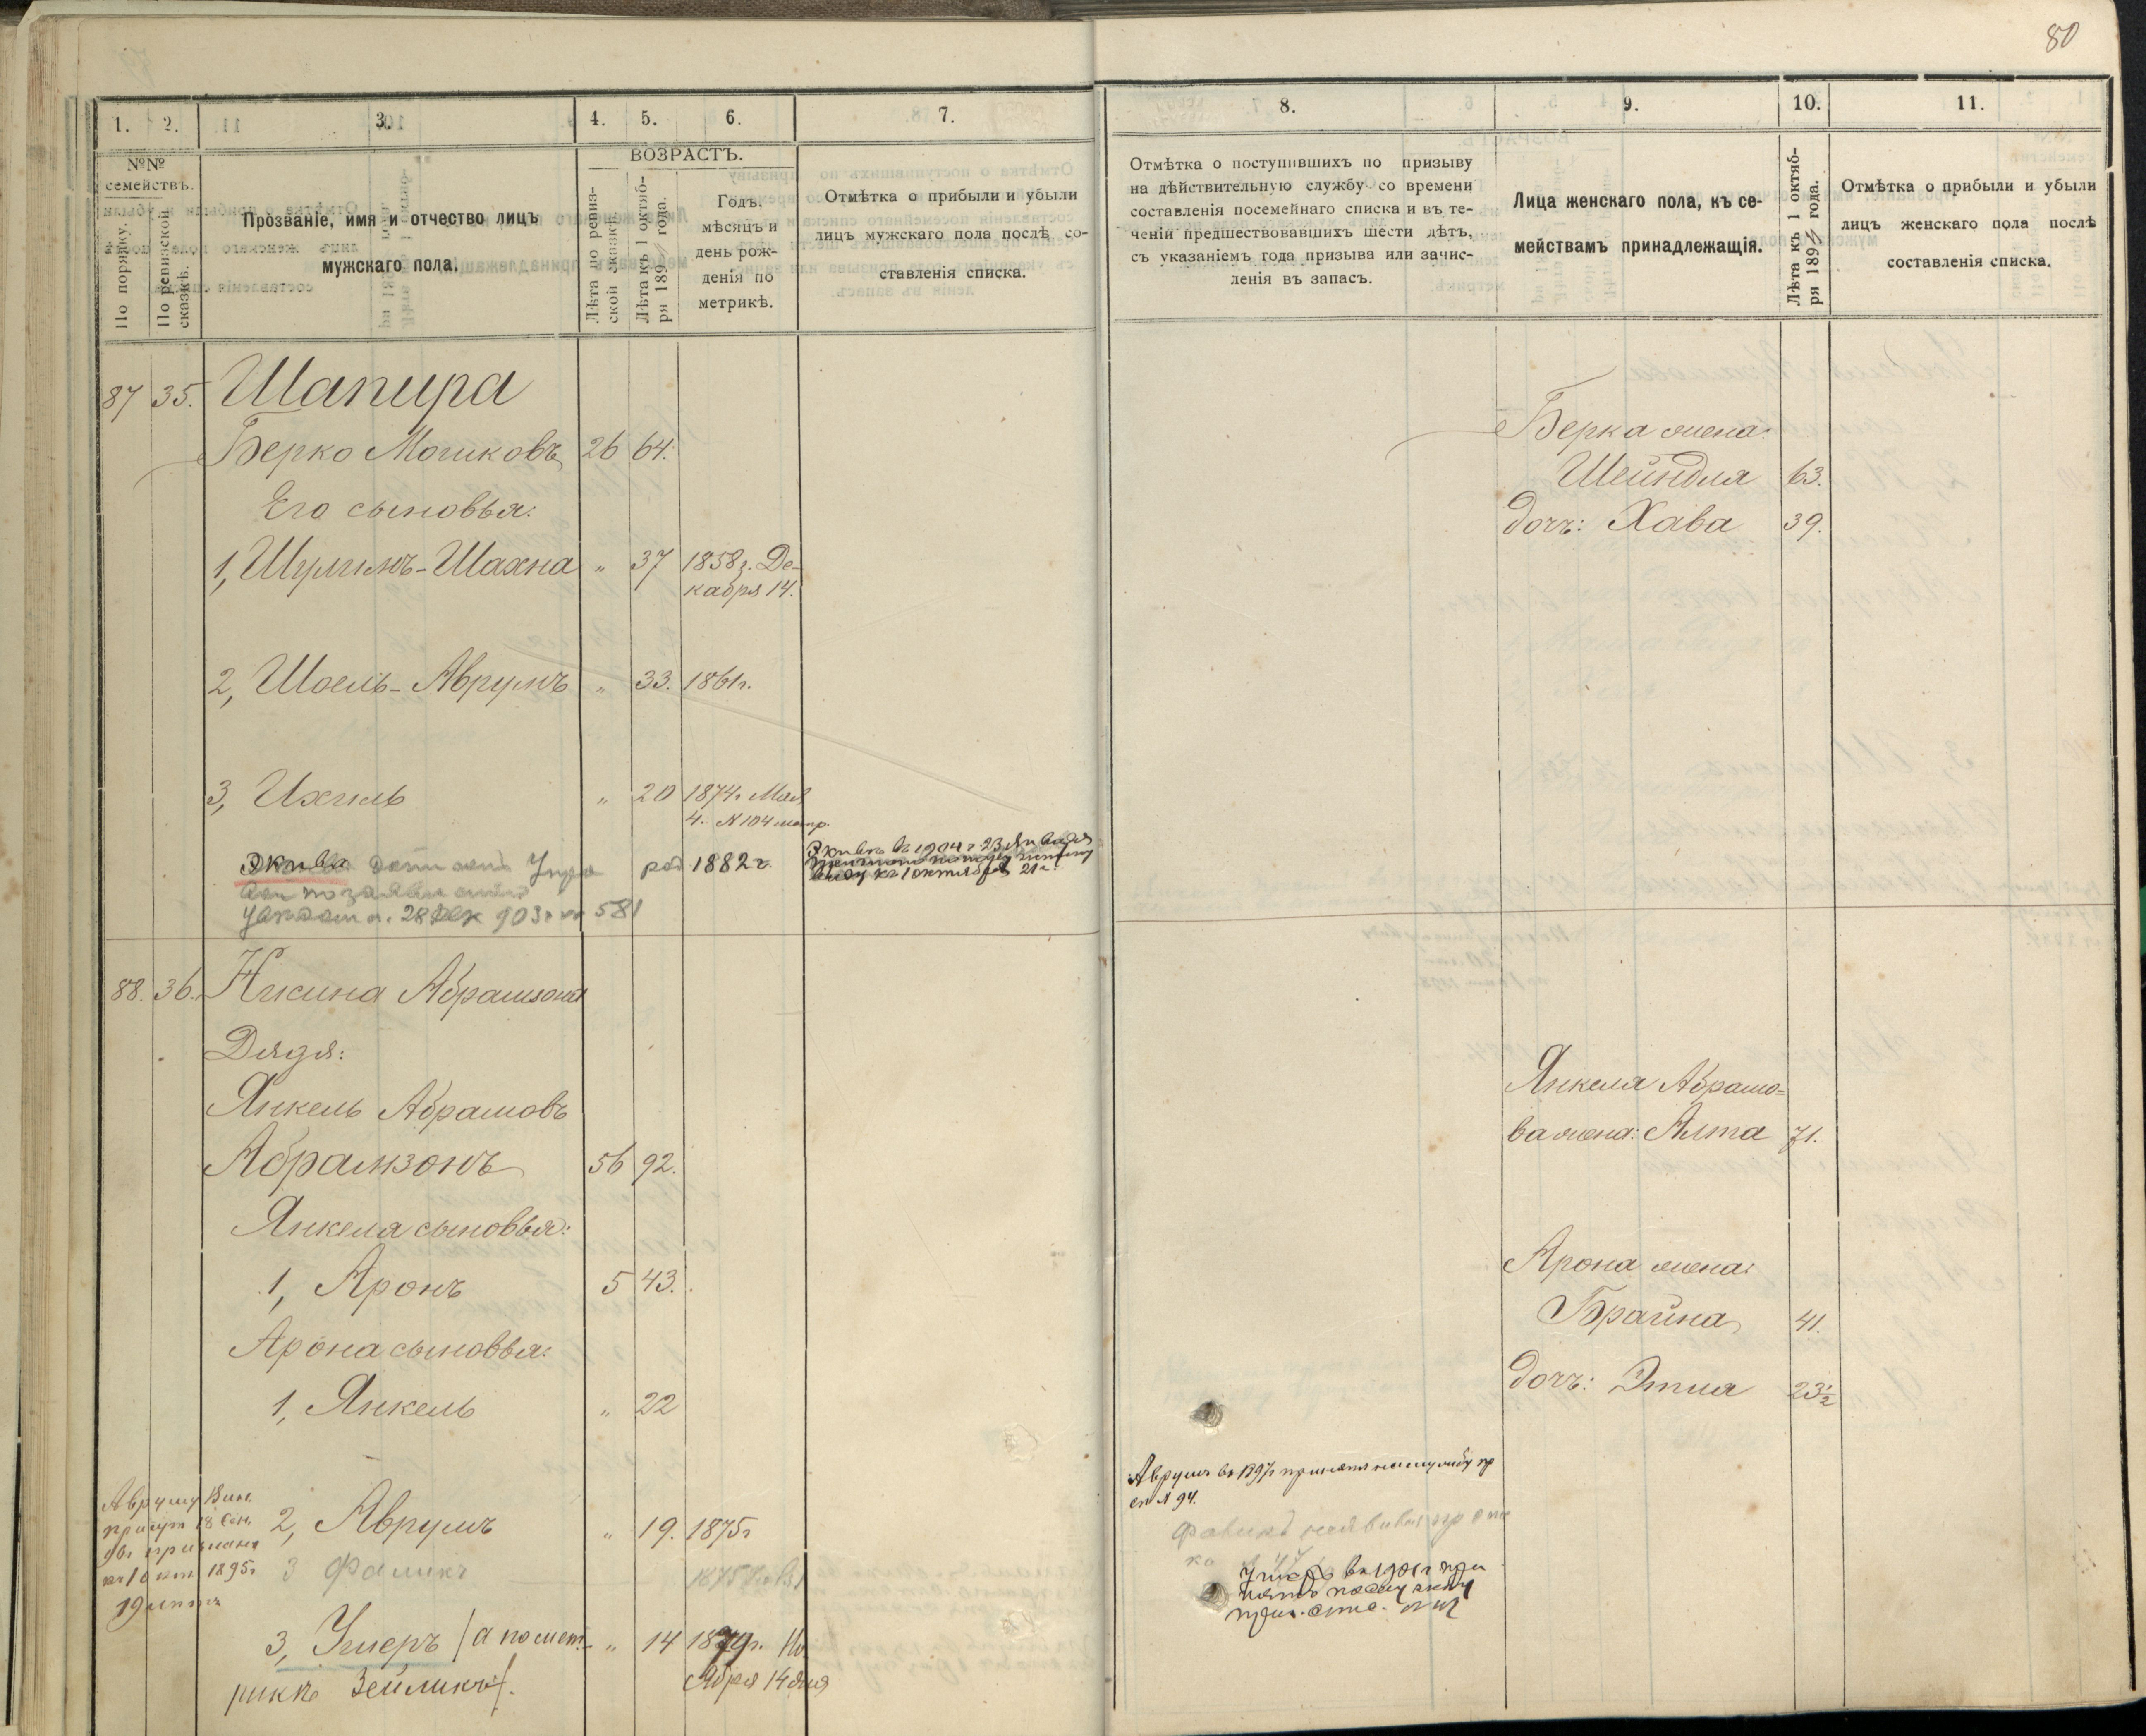 80
1. 2. 3. 4. 5. 6. 7.
№№ семействъ.
По порядку.
По ревизской сказкѣ.
Прозваніе, имя и отчество лицъ
мужскаго пола.
ВОЗРАСТЪ.
Лѣта по ревиз-
ской сказкѣ.
Лѣта къ 1 октяб-
ря 189 года.
Годъ,
мѣсяцъ и
день рож-
денія по
метрикѣ.
Отмѣтка о прибыли и убыли
лицъ мужскаго пола послѣ со-
ставленія списка.
87 35. Шапира
Берко Мошковъ 26 64.
Его сыновья:
1, Шулимъ-Шахна " 37 1858г. Де-
кабря 14.
2, Шоель-Аврумъ " 33. 1861г.
3, Ихиль " 20 1874г. Мая
4. N 104 метр.
Экива род 1882 г
28 Дек 903 г № 581
Экива въ 1904 г 23 Января
къ 1 октября 21 г.
88. 36. Нисина Абрамзона
Дядя:
Янкель Абрамовъ
Абрамзонъ 56 92.
Янкеля сыновья:
1, Аронъ 5 43.
Арона сыновья:
1, Янкель " 22
Авруму Вин.
присут 18 Сен.
къ 1 Окт 1895г
19 летъ
2, Аврумъ " 19. 1875г
3 Фаликъ 1875
3, Умеръ (а по мет- " 14 1879г. Но
рикѣ Зейликъ). ября 14 дня
8. 9. 10. 11.
Отмѣтка о поступившихъ по призыву
на дѣйствительную службу со времени
составленія посемейнаго списка и въ те-
ченіи предшествовавшихъ шести лѣтъ,
съ указаніемъ года призыва или зачис-
ленія въ запасъ.
Лица женскаго пола, къ се-
мействамъ принадлежащія.
Лѣта къ 1 октяб-
ря 189 года.
Отмѣтка о прибыли и убыли
лицъ женскаго пола послѣ
составленія списка.
Берка жена:
Шейндля 63.
дочь: Хава 39.
Янкеля Абрамо-
ва жена: Алта 71.
Арона жена:
Брайна 41.
дочь: Этля 23½
Аврумъ въ 1897г принятъ на службу пр
сп N 94.
Фаликъ
въ 1901 г при
нятъ